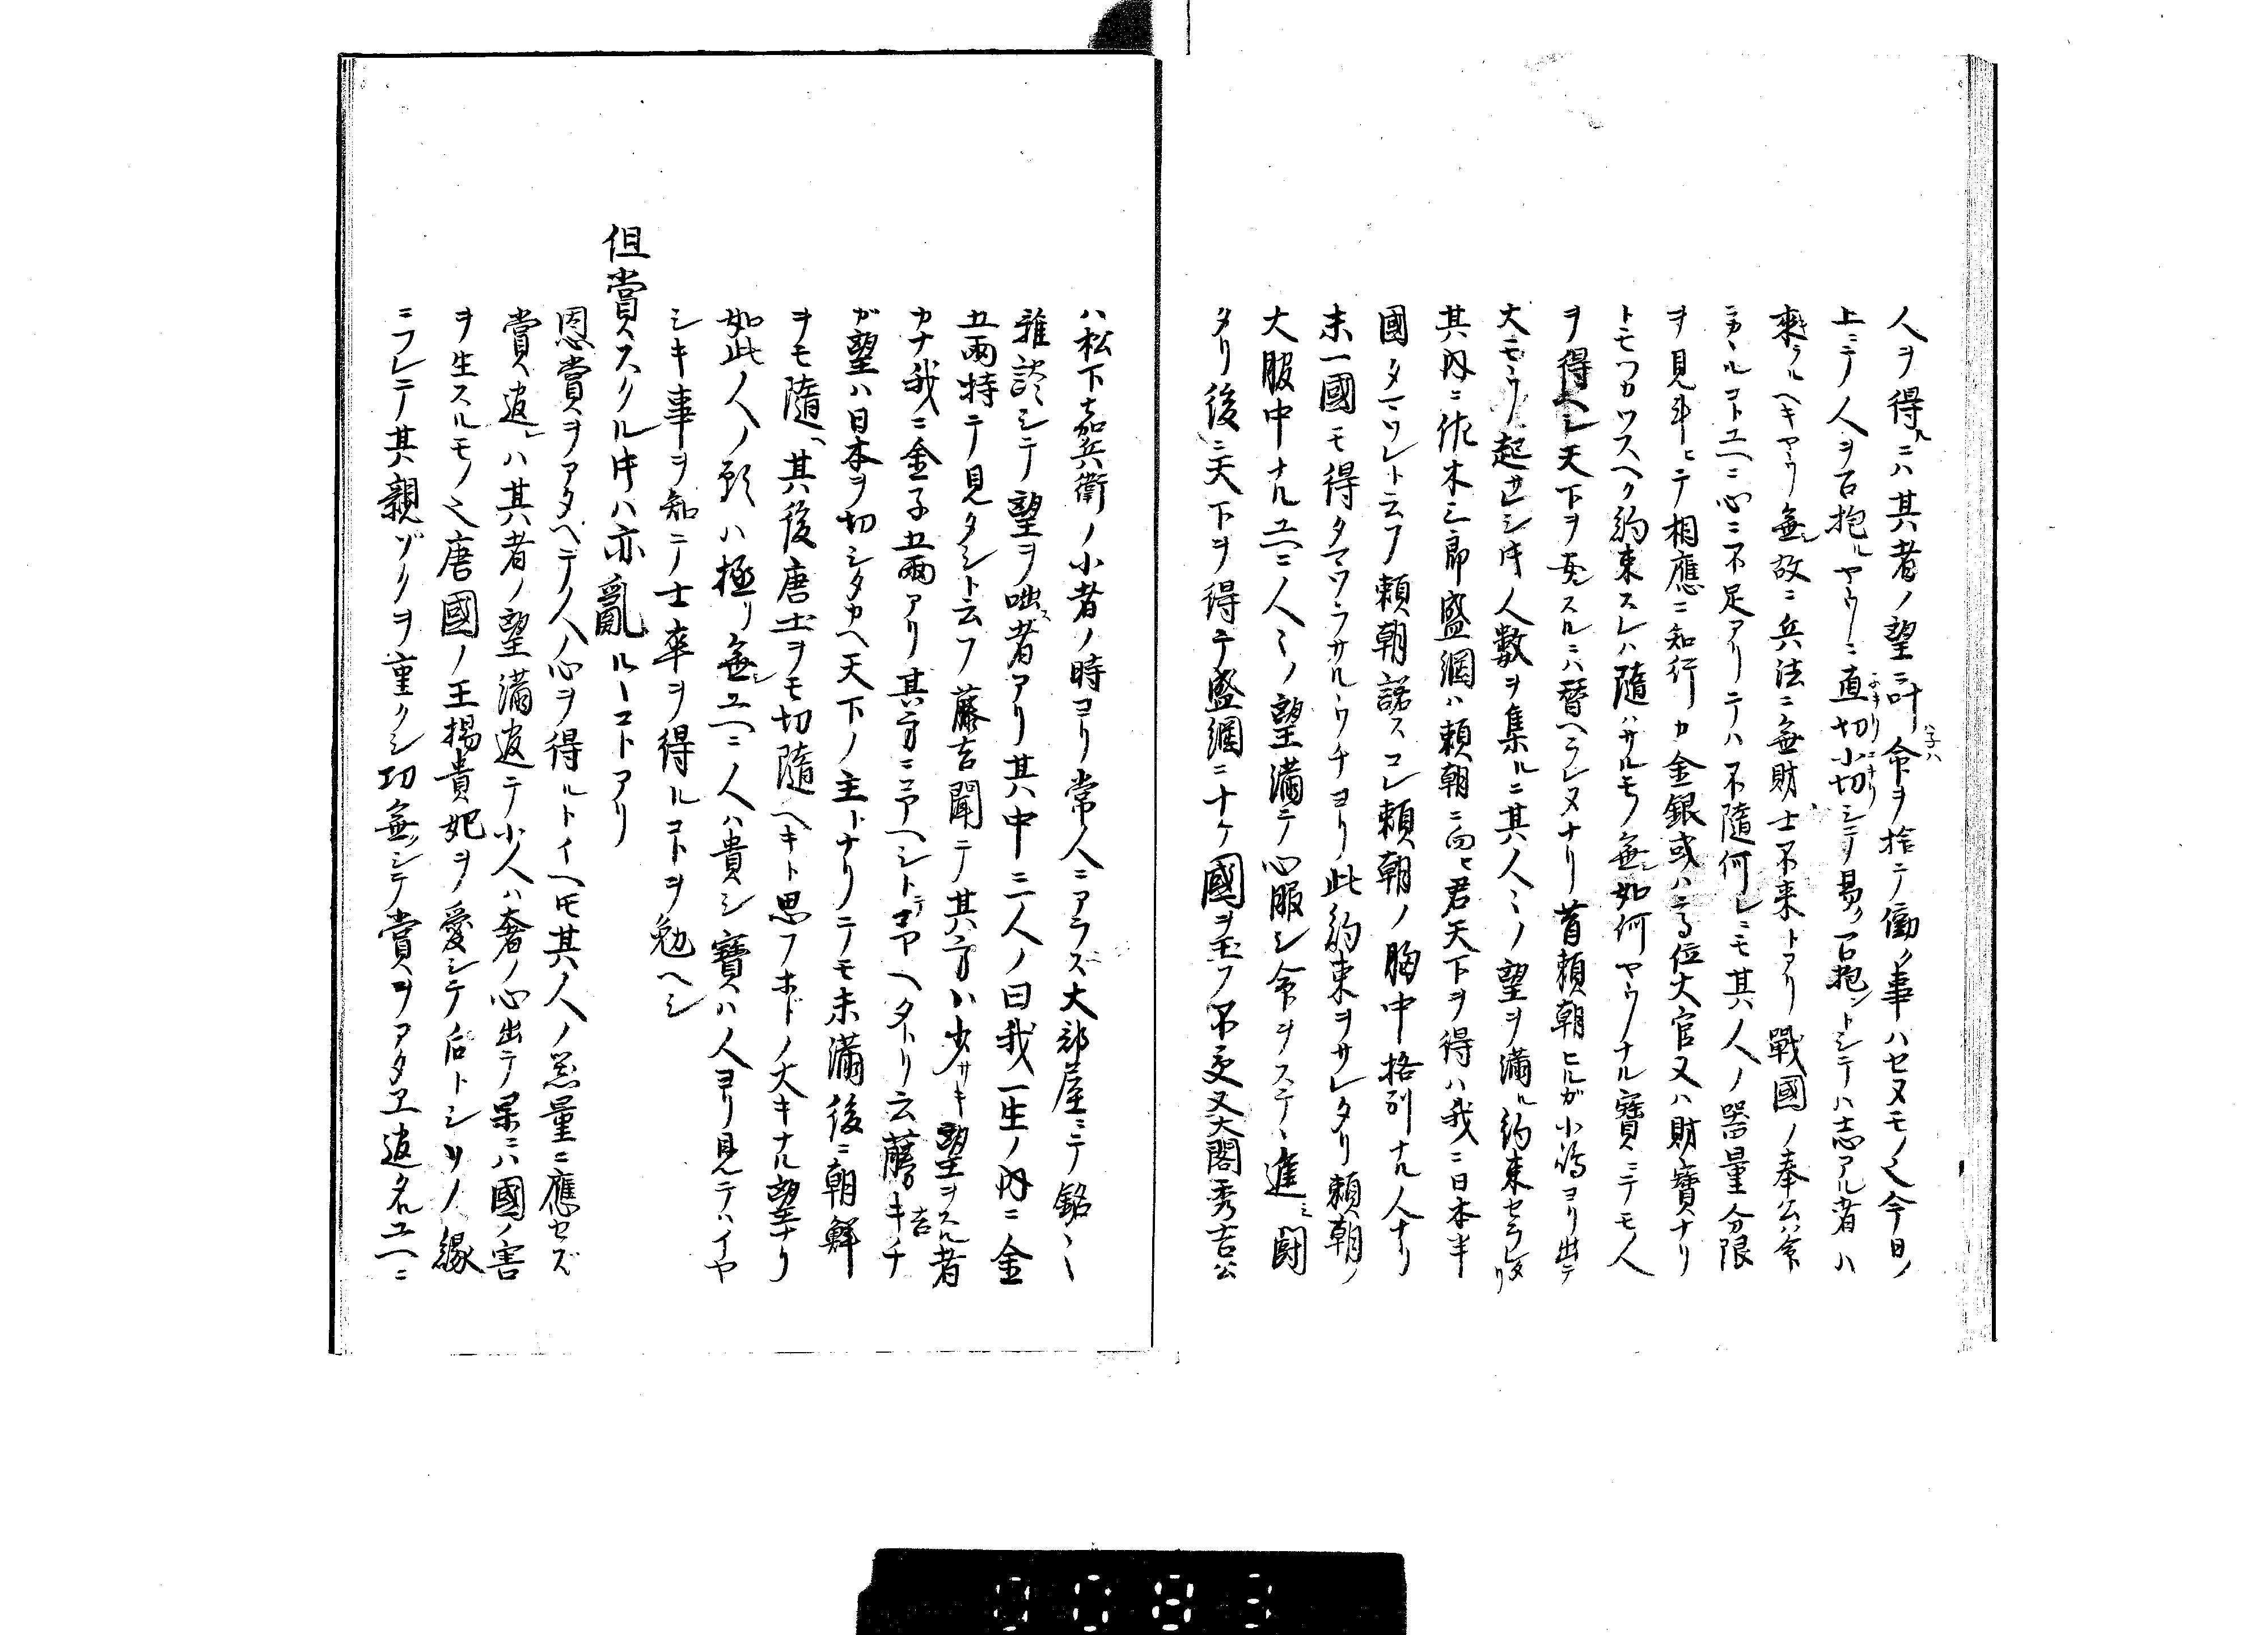 人ヲ得ルニハ其者ノ望ニ叶子ハ命ヲ捨テ働ク事ハセヌモノ也今日ノ
上ニテノ人ヲ召抱ルヤウニ直切小切シテ易ク召抱ントシテハ志アル者ハ
来ルヘキヤウ無シ故ニ兵法ニ無財士不来トアリ戦國ノ奉公ハ命
ニカヽルコトユヘニ心ニ不足アリテハ不随何レニモ其人ノ器量分限
ヲ見斗ヒテ相應ニ知行カ金銀或ハ高位大官又ハ財寶ナリ
トモツカワスヘク約束スレハ随ハサルモノ無シ如何ヤウナル寶ニテモ人
ヲ得ヘシ天下ヲ要スルニハ替ヘラレヌナリ昔頼朝ヒルガ小嶋ヨリ出テ
大モウヲ起サレシ時人数ヲ集ルニ其人ミノ望ヲ満ル約束セラレタリ
其内ニ佐木三郎盛綱ハ頼朝ニ向ヒ君天下ヲ得ハ我ニ日本半
國タマワレト云フ頼朝諾スコレ頼朝ノ胸中格別ナル人ナリ
未一國モ得タマワラサルウチヨリ此約束ヲサレタリ頼朝ノ
大腹中ナルユヘニ人ミノ望満テ心服シ命ヲステヽ進ミ闘
タリ後ニ天下ヲ得テ盛綱ニ十ケ國ヲ玉フ不足又大閤秀吉公
ハ松下嘉兵衛ノ小者ノ時ヨリ常人ニアラズ大部屋ニテ銘ミ
雑談シテ望ヲ咄ス者アリ其中ニ一人ノ曰我一生ノ内ニ金
五両持テ見タシト云フ藤吉聞テ其方ハ少サキ望ヲスル者
カナ我ニ金子五両アリ其方ニアヘシトテアヘタリ云藤吉キチ
ガ望ハ日本ヲ切シタカヘ天下ノ主トナリノテモ未満後ニ朝鮮
ヲモ随ヘ其後唐土ヲモ切随ヘキト思フホドノ大キナル望ナリ
如此ノ人ノ願ハ極リ無シユヘニ人ハ貴シ寶ハ人ヨリ見テハイヤ
シキ事ヲ知テ士卒ヲ得ルコトヲ勉ヘシ
但賞スクル時ハ亦乱ルヽコトアリ
恩賞ヲアタヘテ人ノ心ヲ得ルトイヘトモ其人ノ器量ニ應セズ
賞過レハ其者ノ望満過テ小人ハ奢ノ心出テ果ニハ國ノ害
ヲ生スルモノ也唐國ノ王楊貴妃ヲ愛シテ后トシソノ縁
ニフレテ其親ゾクヲ重クシ功無シテ賞ヲアタヱ過タルユヘニ